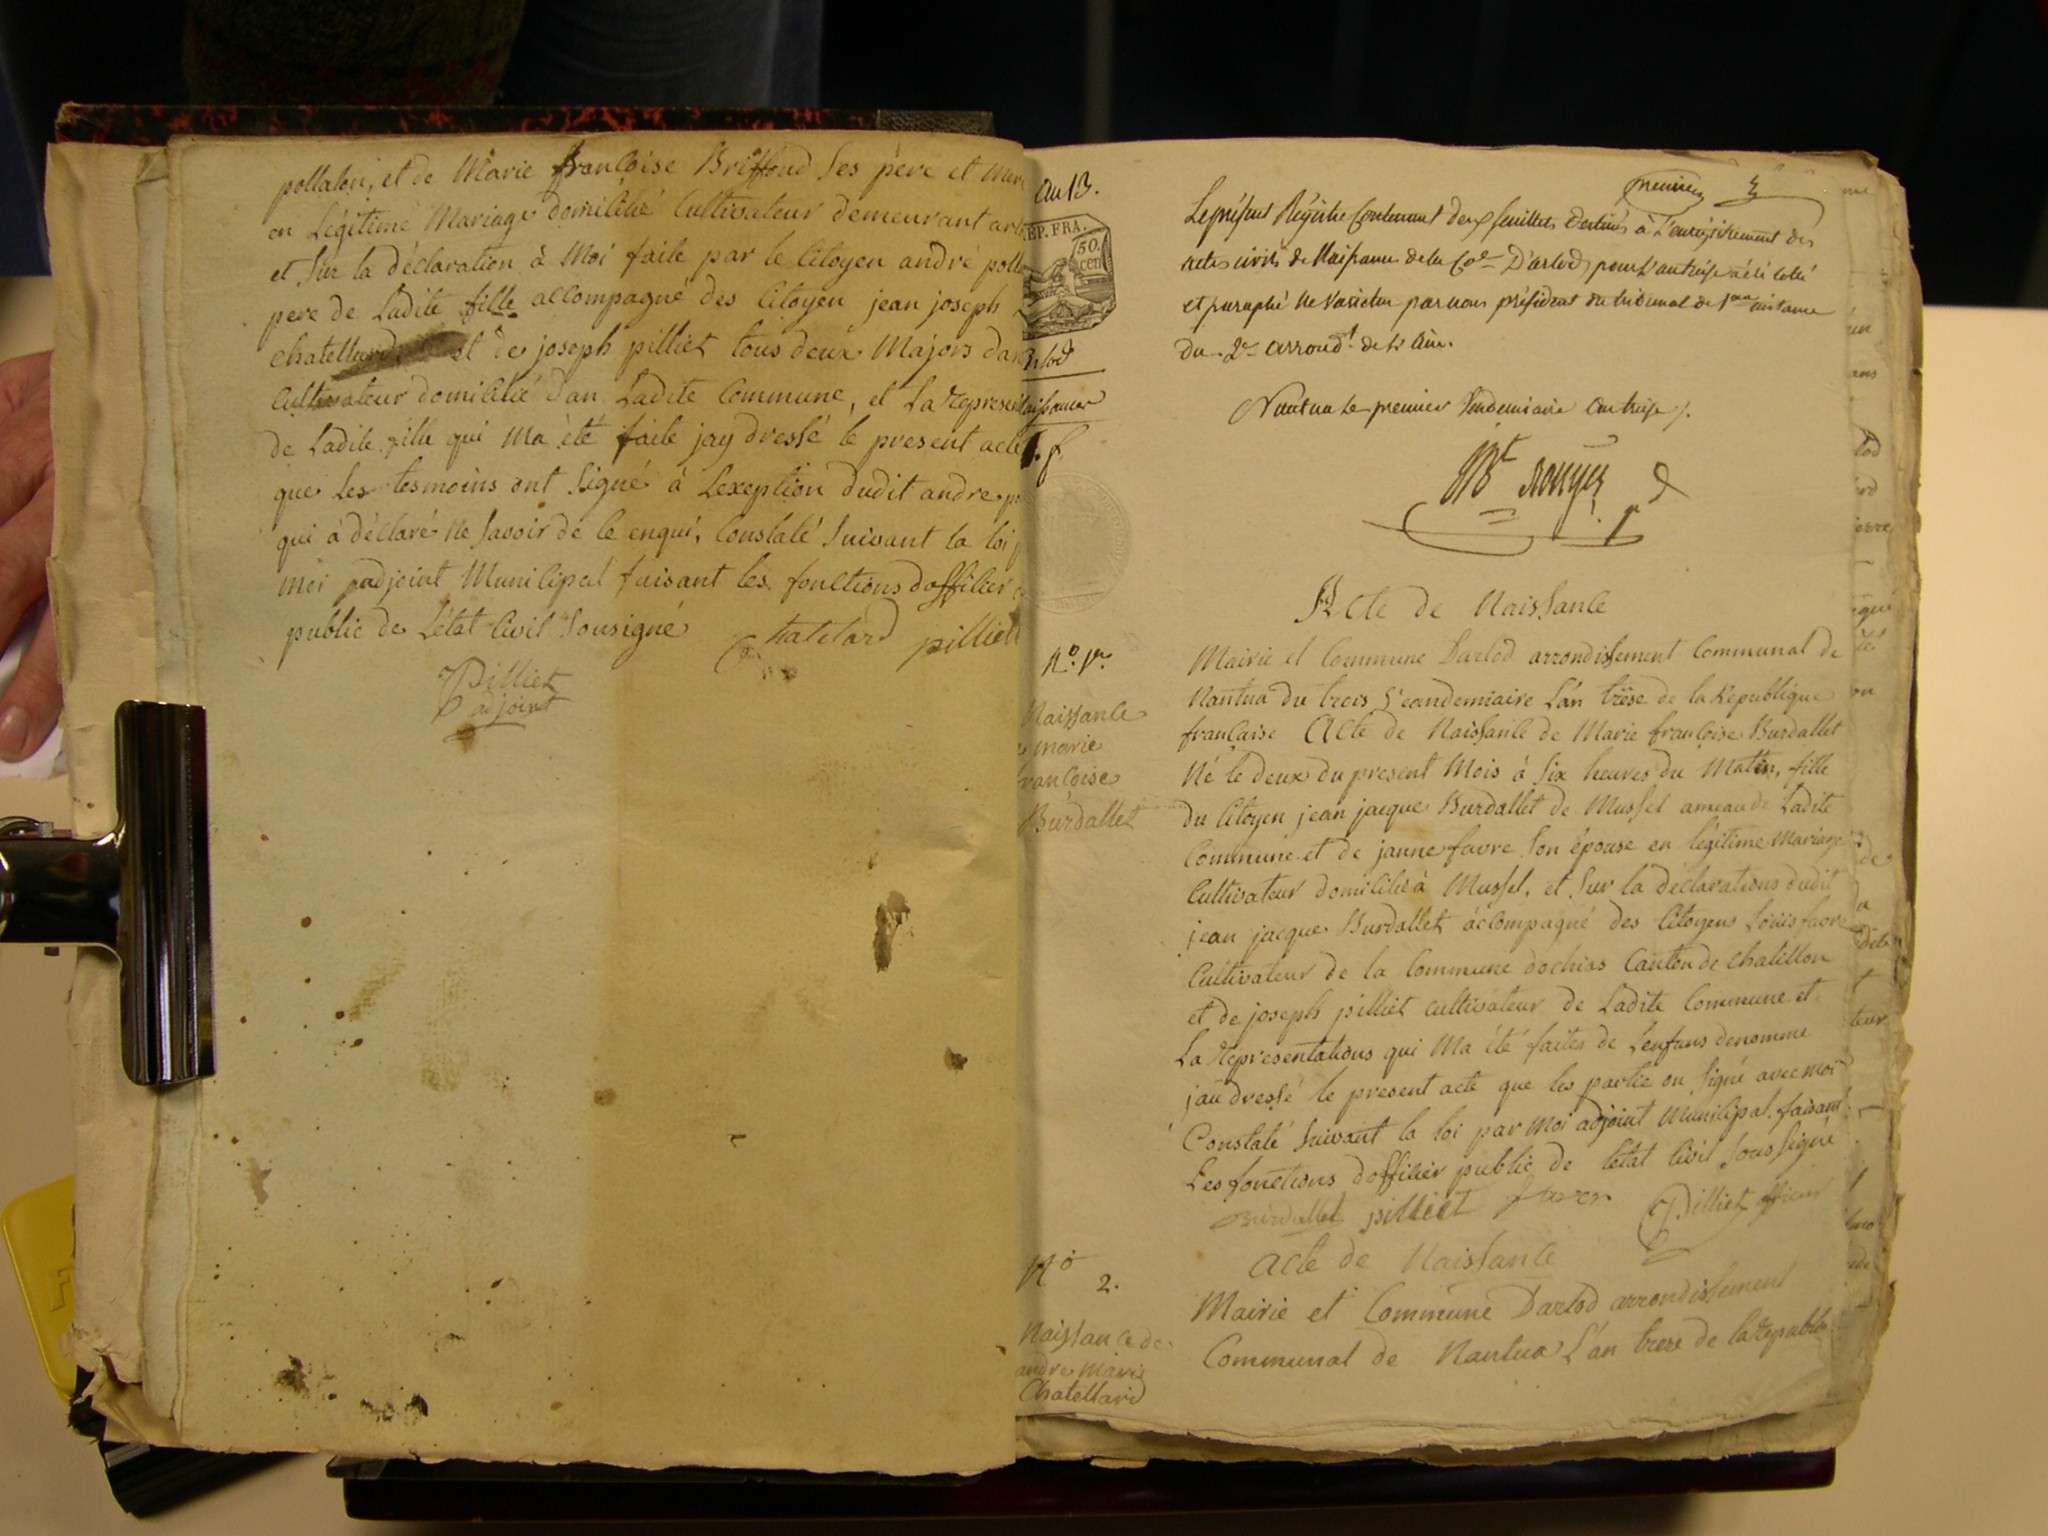 pollaton, et de Marie françoise Briffond ses père et mere
en Légitime Mariage domicilié Cultivateur demeurant
et sur la déclaration à Moi faite par le Citoyen andré
pere de Ladite fille accompagné des Citoyen jean joseph
chatellard et de joseph pilliet tous deux Majors
Cultivateur domicilié dan Ladite Commune, et La
de Ladite fille qui Ma été faite jay dressé le present acte
que les tesmoins ont signé à Lexeption dudit andre
qui à déclaré ne savoir de le enqui, Constaté suivant la loi
moi adjoint Municipal faisant les fonctions dofficier
public de Létat Civil Sousigné Chatelard pilliet
Pilliet
adjoint
an 13.
REP. FRA.
50.
cen
naissances
premier
Le présent Régistre Contenant deux feuillets destinés à L'enrégistrement des
actes civils de Naissance de la Cne D'arlod, pour L'an treise a été cotté
et paraphé Ne Varietur par nous président du tribunal de 1ere instance
du 2e arrondt de L'Ain.
Nantua Le premier Vendemiaire an treise
Rouyer
Acte de Naissance
No. 1er
Naissance
marie
françoise
Burdallet
Mairie et Commune Darlod arrondissement Communal de
Nantua du trois Veandemiaire L'an trèse de la Republique
française Acte de Naissance de Marie françoise Burdallet
Né le deux du present Mois à six heures du Matin, fille
du Citoyen jean jacque Burdallet de Mussel ameau de Ladite
Commune et de janne favre son épouse en légitime Mariage
Cultivateur domicilié à Mussel, et sur la déclarations dudit
jean jacque Burdallet accompagné des Citoyens Louis favre
Cultivateur de la Commune dochias Canton de chatillon
et de joseph pilliet cultivateur de Ladite Commune et
La representations qui Ma été faites de Lenfans denomme
jai dressé le present acte que les partie on signé avec moi
Constaté suivant la loi par moi adjoint Municipal faisant
Les fonctions dofficier public de létat Civil sous signé
Burdallet pilliet favre Pilliet
No 2.
Naissance de
andre Marie
Chatellard
Acte de Naissance
Mairie et Commune Darlod arrondissement
Communal de Nantua L'an trese de la republi